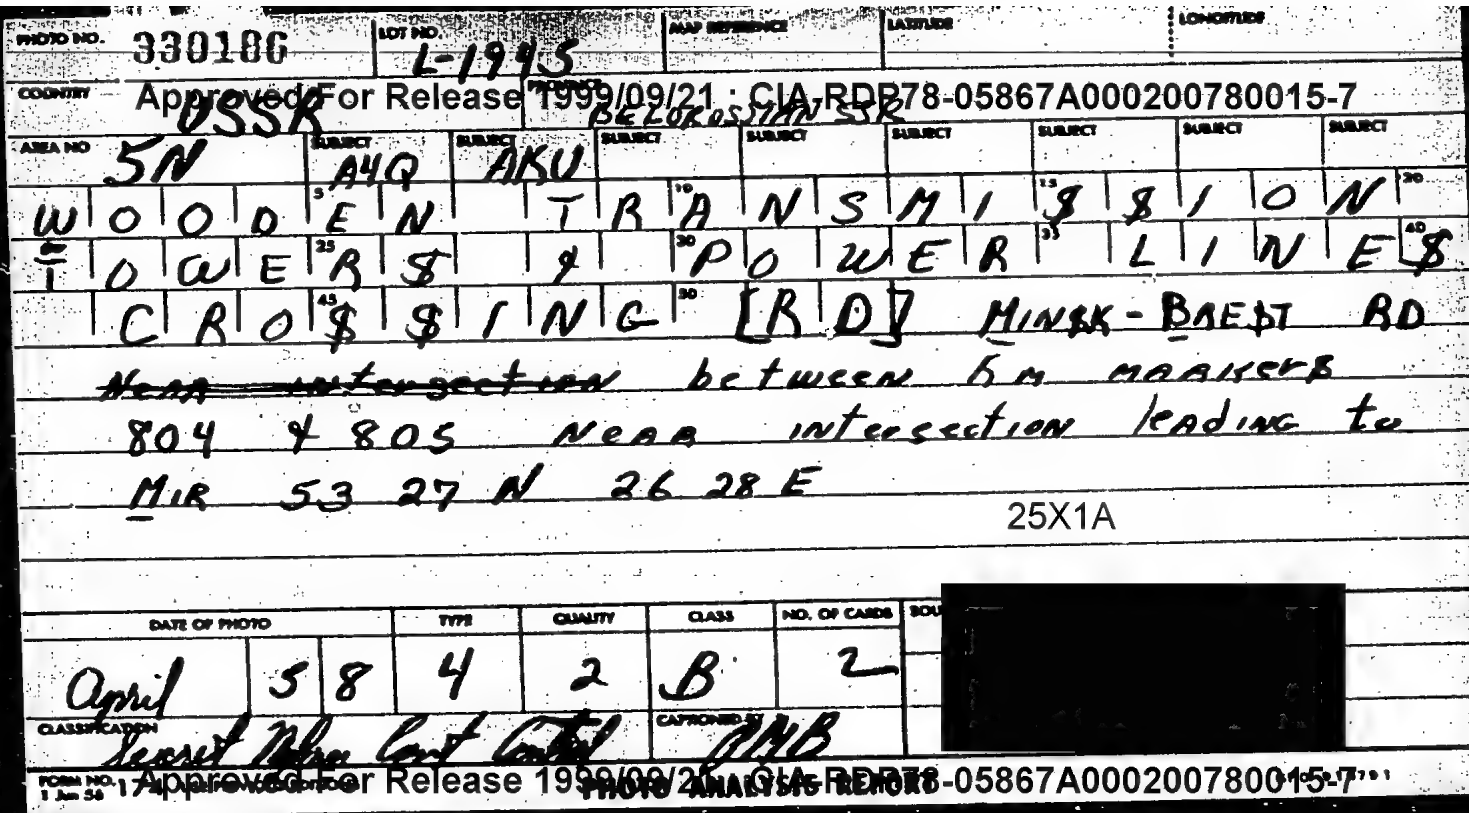 PHOTO NO. 330186 LOT NO. L-1945 MAP REFERENCE LATITUDE LONGITUDE
Approved For Release 1999/09/21 : CIA-RDP78-05867A000200780015-7
COUNTRY USSR PROVINCE BELORUSSIAN SSR
AREA NO 5N SUBJECT A4Q SUBJECT AKU SUBJECT SUBJECT SUBJECT SUBJECT SUBJECT SUBJECT
WOODEN TRANSMI$$ION
TOWER$ & POWER LINE$
CRO$$ING [RD] MIN$K-BRE$T RD
Near intersection between Km marker$
804 & 805 Near intersection leading to
MIR 53 27 N 26 28 E
25X1A
DATE OF PHOTO TYPE QUALITY CLASS NO. OF CARDS SOU
April 58 4 2 B 2
CLASSIFICATION Secret Noforn Cont Control CAPTIONED BY
FORM NO. 1 Jan 56
Approved For Release 1999/09/21 : CIA-RDP78-05867A000200780015-7
PHOTO ANALYSIS REPORT